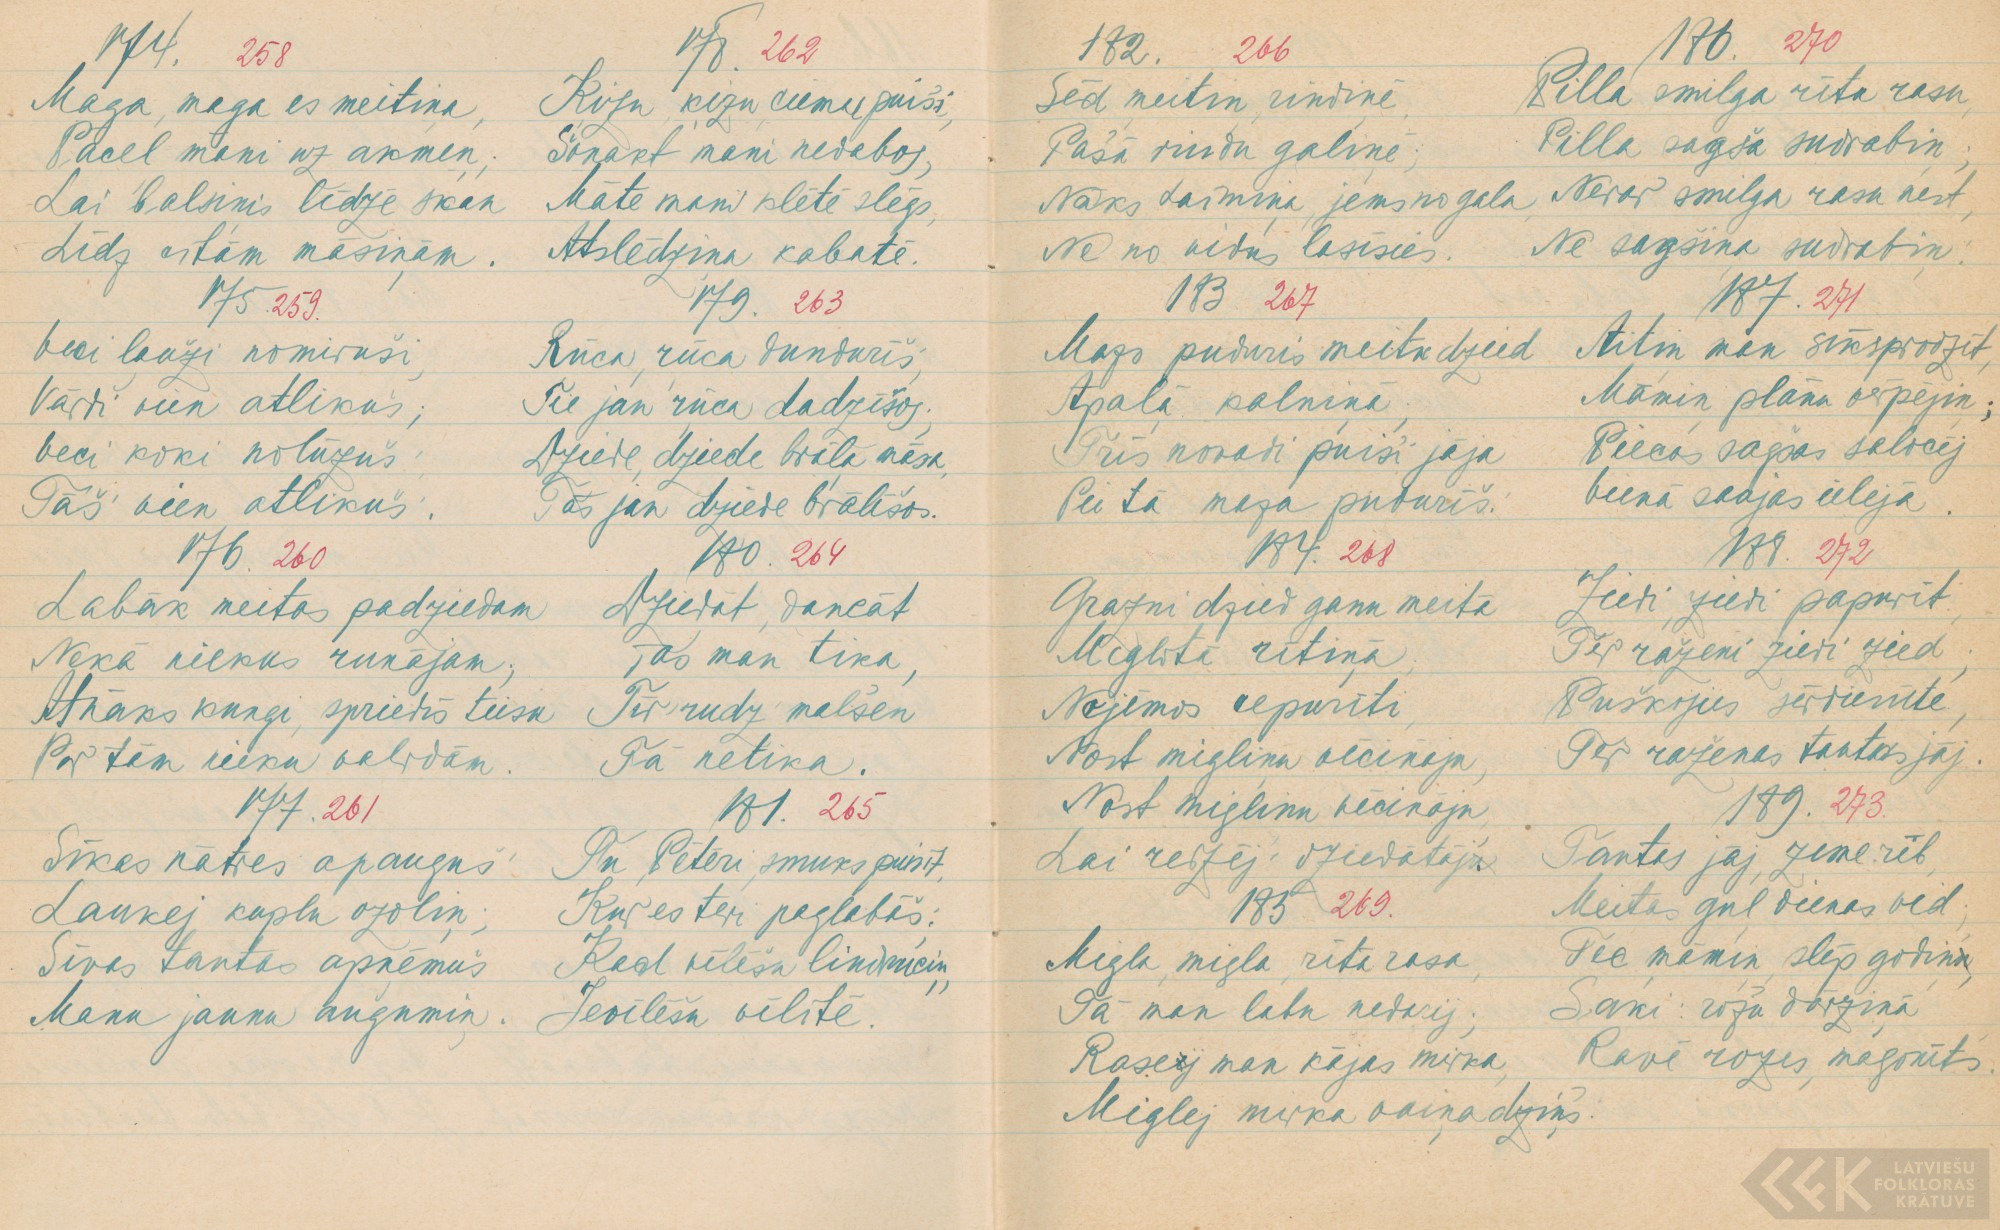 174. 258
Maga, maga es meitiņa,
Pacel mani uz akmeņ;
Lai balsiņis līdzē skan
Līdz citām māsiņām.
175. 259.
Veci ļauži nomiruši,
Vārdi vien atlikuš;
Veci koki nolūzuš,
Tāš vien atlikuš.
176. 260
Labāk meitas padziedam
Nekā niekus runājam;
Atnāks kungi, spriedīs tiesu
Par tām nieku valodām.
177. 261
Sīkas nātres apauguš
Laukej kuplu ozoliņ;
Sīvas tautas apņēmuš
Manu jaunu augumiņ.
178. 262
Ķiģu, ķiģu, ciema puiši,
Šonakt mani nedabos,
Māte mani klētē slēgs,
Atslēdziņa kabatē.
179. 263
Rūca, rūca dunduris,
Tie jau rūca dadzīšos;
Dziede, dziede brāļa māsa,
Tas jau dziede brālīšos.
180. 264
Dziedāt, dancāt
Tas man tika,
Pēr rudz malšen
Tā netika.
181. 265
Tu Pēteri, smuks puisīt,
Kur es tevi paglabāš;
Kad vēlēšu lindruciņ,
Ievēlēšu vēlītē.
182. 266
Sēd meitiņ rindiņē,
Pašā rindu galiņē;
Nāks Laimiņa, jems no gala,
Ne no vidus lasīsies.
183 267
Mazs puduris meitu dzied
Apaļā kalniņā;
Trīs novadi puiši jāja
Pei tā maza puduriš.
184. 268
Grazni dzied ganu meita
Miglotā rītiņā,
Noјēmos cepurīti,
Nost migliņu vēcināju,
Nost migliņu vēcināju,
Lai redzēj dziedātāju.
185 269.
Migla, migla, rīta rasa,
Tā man labu nedarij;
Rasej man kājas mirka,
Miglej mirka vaiņadziņš.
186. 270
Pilla smilga rīta rasu,
Pilla sagša sudrabiņ;
Nevar smilga rasu nest,
Ne sagšiņa sudrabiņ.
187. 271
Aitiņ man sīksprodzīt,
Māmiņ plānu vērpējiņ;
Piecas sagšas salocīj
Vienā saujas ielejā.
188. 272
Ziedi, ziedi papurīt,
Pēr raženi ziedi zied;
Puškojies sērdienīte,
Pēr raženas tautas jāj.
189. 273.
Tautas jāj, zeme rīb,
Meitas guļ dienas vid;
Tec, māmiņ, slēp godiņu,
Saki: rožu dārziņā
Ravē rozes, magonīts.
LATVIEŠU
FOLKLORAS
KRĀTUVE